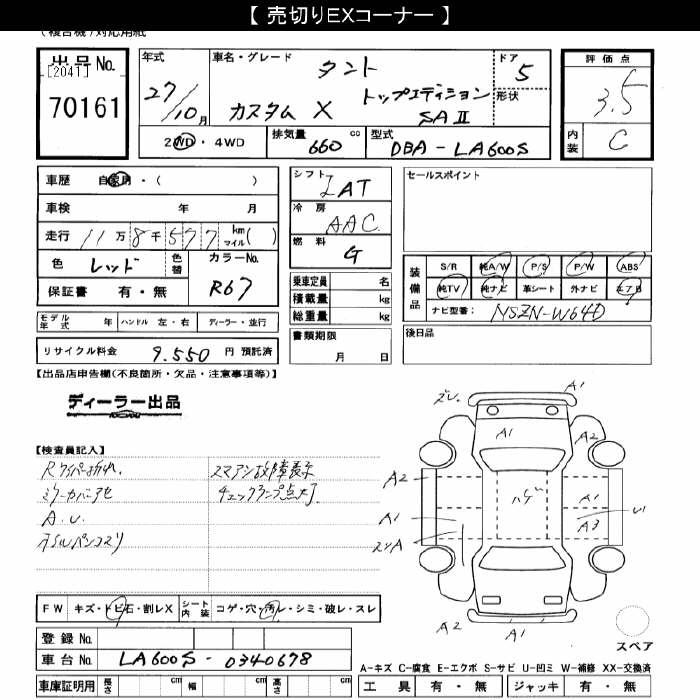 【 売切りEXコーナー 】
(複合機)対応用紙
出品No.
[2041]
70161
年式
27/10月
車名・グレード
タント
カスタム X トップエディション SAⅡ
ドア
5
形状
2WD・4WD
排気量 660 cc
型式 DBA-LA600S
評価点
3.5
内装 C
車歴 自家用・( )
車検 年 月
走行 11万8千577 km マイル( )
色 レッド 色替 カラーNo. R67
保証書 有・無
モデル年式 年 ハンドル 左・右 ディーラー・並行
リサイクル料金 9.550 円 預託済
シフト IAT
冷房 AAC
燃料 G
乗車定員 名
積載量 kg
総重量 kg
書類期限
月 日
セールスポイント
装備品
S/R 純A/W P/S P/W ABS
純TV 純ナビ 革シート 外ナビ エアB
ナビ型番: NSZN-W64D
後日品
【出品店申告欄(不良箇所・欠品・注意事項等)】
ディーラー出品
【検査員記入】
Rワイパー折れ. スマアシ故障表示
ミラーカバーアセ チェックランプ点灯
A.U.
オイルパンコスリ
A1
A1
A2
A2
ハゲ
A1
A1
A3
スレA
A2
A1
FW キズ・トビ石・割レX シート内装 コゲ・穴・汚レ・シミ・破レ・スレ
登録No.
車台No. LA600S-0340678
車庫証明用 長さ cm 幅 cm 高さ cm
スペア
A-キズ C-腐食 E-エクボ S-サビ U-凹ミ W-補修 XX-交換済
工具 有・無 ジャッキ 有・無